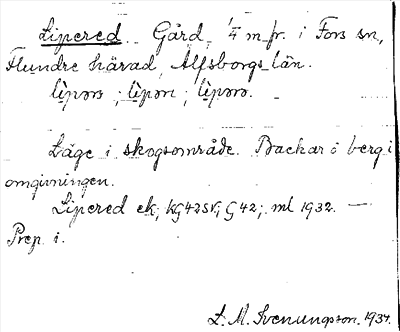 Lipered. Gård, 1/4 m fr. i Fors sn,
Flundre härad, Älfsborgs län.
lìpərs ; lìpən ; lìpərs.
Läge i skogsområde. Backar o berg i
omgivningen.
Lipered ek, kg 42 SV, G 42; ml 1932. —
Prep. i.
L. M. Svenungsson. 1934.